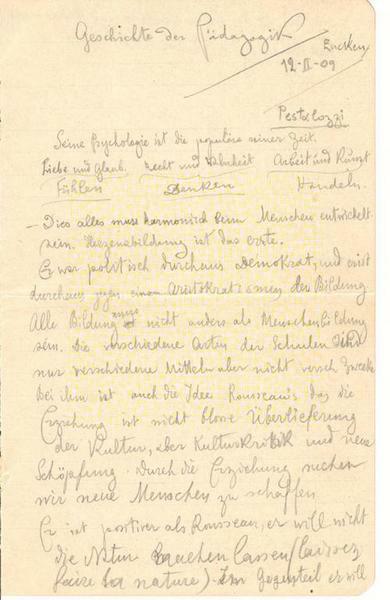 Geschichte der Pädagogik
Eucken
12-II-09
Pestalozzi
Seine Psychologie ist die populäre seiner Zeit.
Liebe und Glaub. Recht und Wahrheit Arbeit und Kunst
Fühlen Denken Handeln.
– Dies alles muss harmonisch beim Menschen entwickelt
sein. Herzensbildung ist das erste.
Er war politisch durchaus Demokrat, und er ist
durchaus gegen einen Aristokratismus der Bildung
Alle Bildung muss nicht anders als Menschenbildung
sein. Die verschiedene Arten der Schulen sind
nur verschiedene Mitteln aber nicht versch. Zwecke
Bei ihm ist auch die Idee Rousseau's das die
Erziehung ist nicht blosse Überlieferung
der Kultur, aber Kulturkritik und neue
Schöpfung. Durch die Erziehung suchen
wir neue Menschen zu schaffen
Er ist positiver als Rousseau, er will nicht
die Natur machen lassen (laissez
faire la nature). Im Gegenteil er will